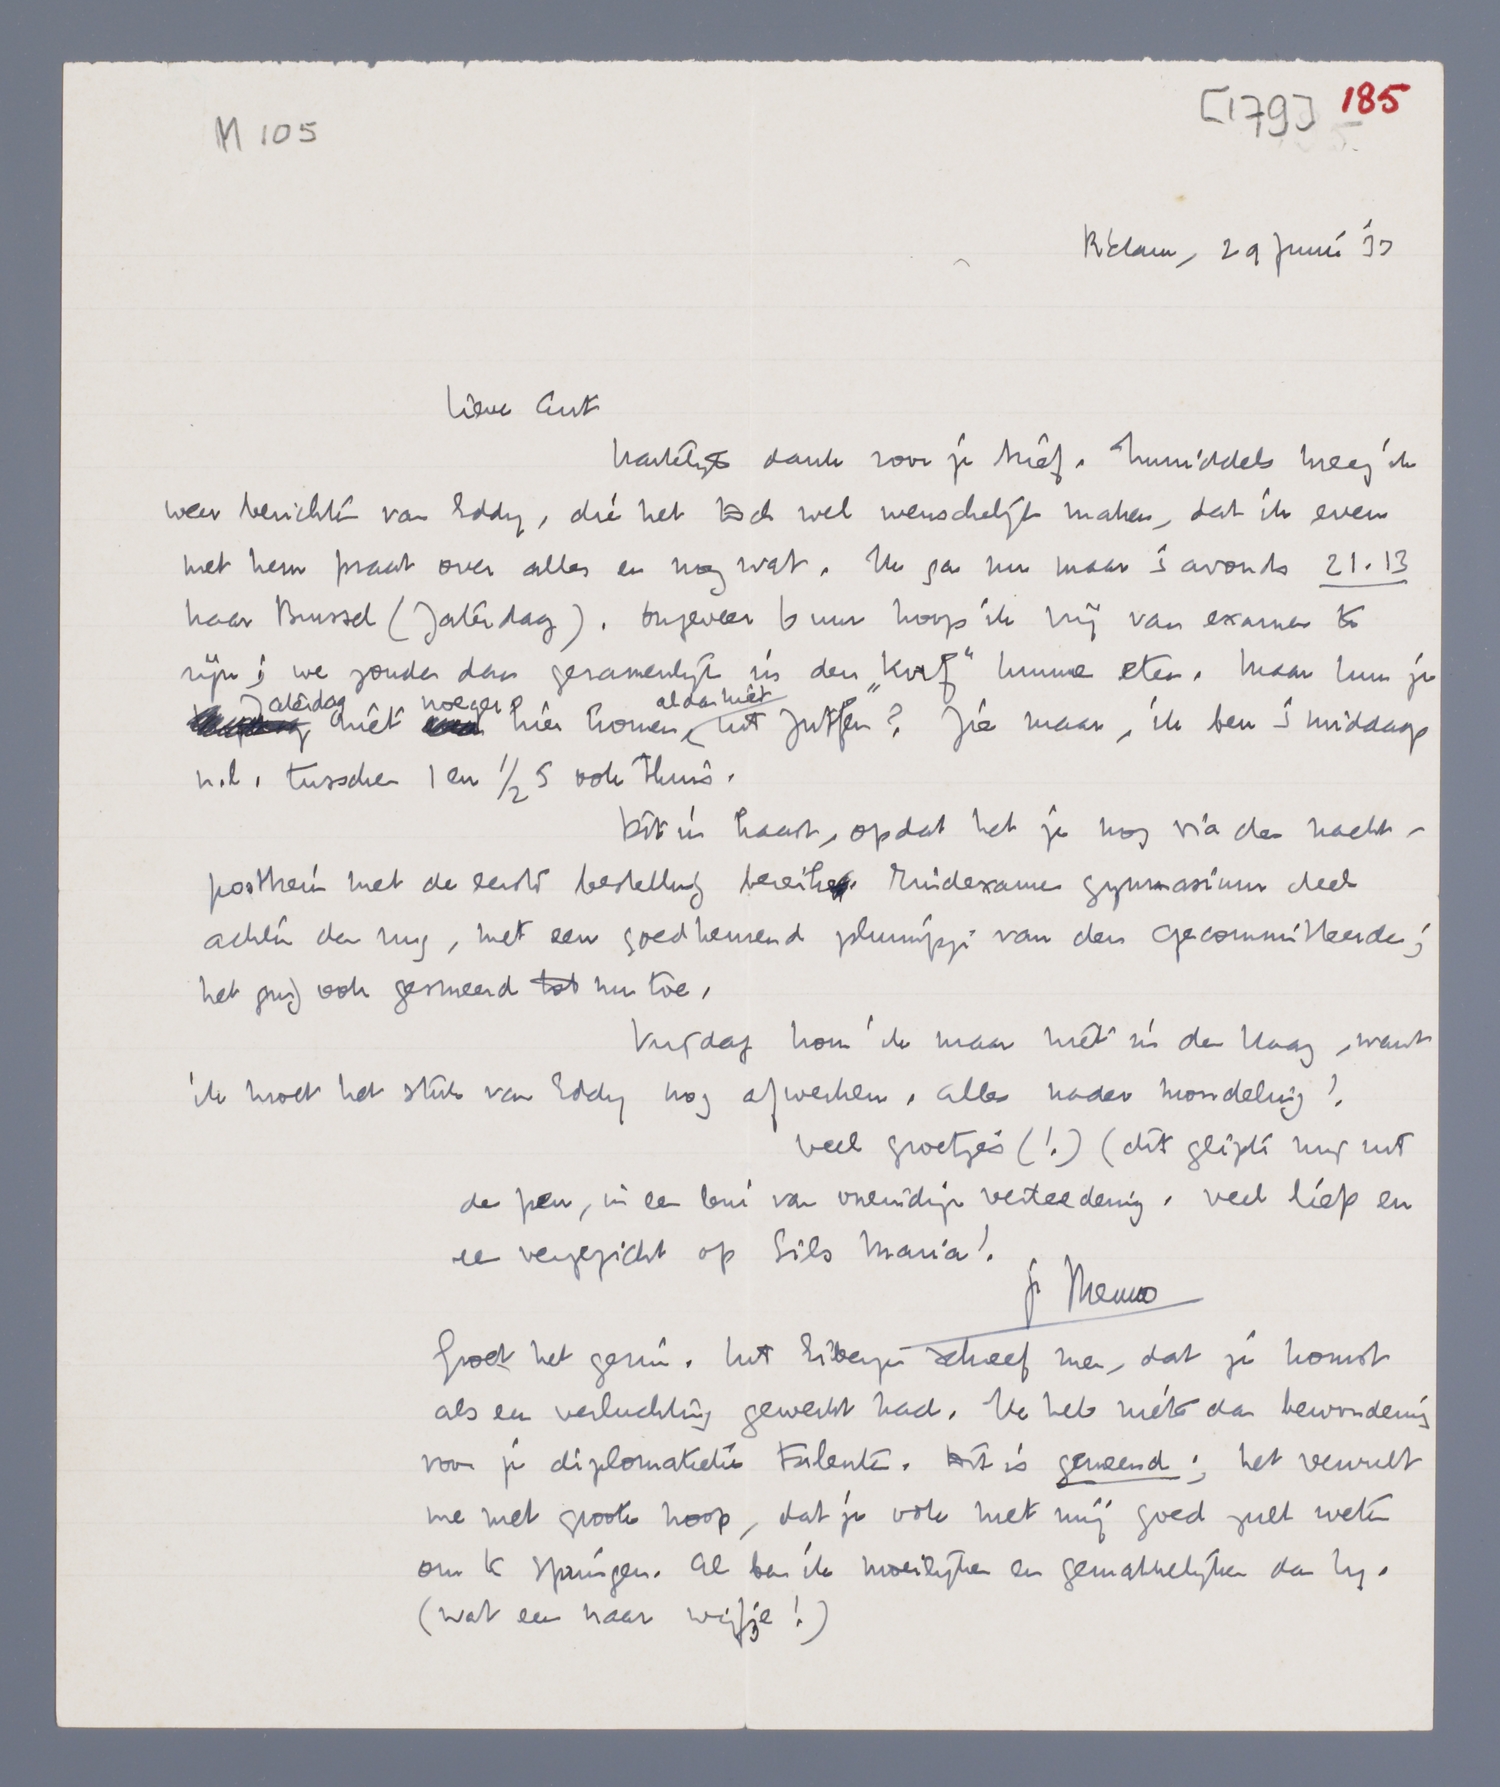 M 105
[179] 185
R'dam, 29 Juni '33
Lieve Ant
hartelijk dank voor je brief. Inmiddels kreeg ik
weer berichten van Eddy, die het toch wel wenschelijk maken, dat ik even
met hem praat over alles en nog wat. Ik ga nu maar 's avonds 21.13
naar Brussel (Zaterdag). Ongeveer 6 uur hoop ik vrij van examen te
zijn; we zouden dan gezamenlijk in den „Korf" kunnen eten. Maar kun je
Zaterdag niet vroeger hier komen, al dan niet met Jutfen? Zie maar, ik ben 's middags
n.l. tusschen 1 en 1/2 5 ook thuis.
Dit in haast, opdat het je nog via den nacht-
posttrein met de eerste bestelling bereike. Eindexamen gymnasium deel
achter den rug, met een goedkeurend pluimpje van den gecommitteerde;
het ging ook gesmeerd tot nu toe.
Vrijdag kom ik maar niet in den Haag, want
ik moet het stuk van Eddy nog afwerken. Alles nader mondeling!
Veel groetjes (!) (dit glipte mij uit
de pen, in een bui van oneindige verteedering. Veel liefs en
een vergezicht op Sils Maria!
Je Menno
Groet het gezin. schreef me, dat je komst
als een verluchting gewerkt had. Ik heb niets dan bewondering
voor je diplomatieke talenten. Dit is gemeend; het vervult
me met groote hoop, dat je ook met mij goed zult weten
om te springen. Al ben ik moeilijker en gemakkelijker dan hij.
(wat een naar wijfje!)